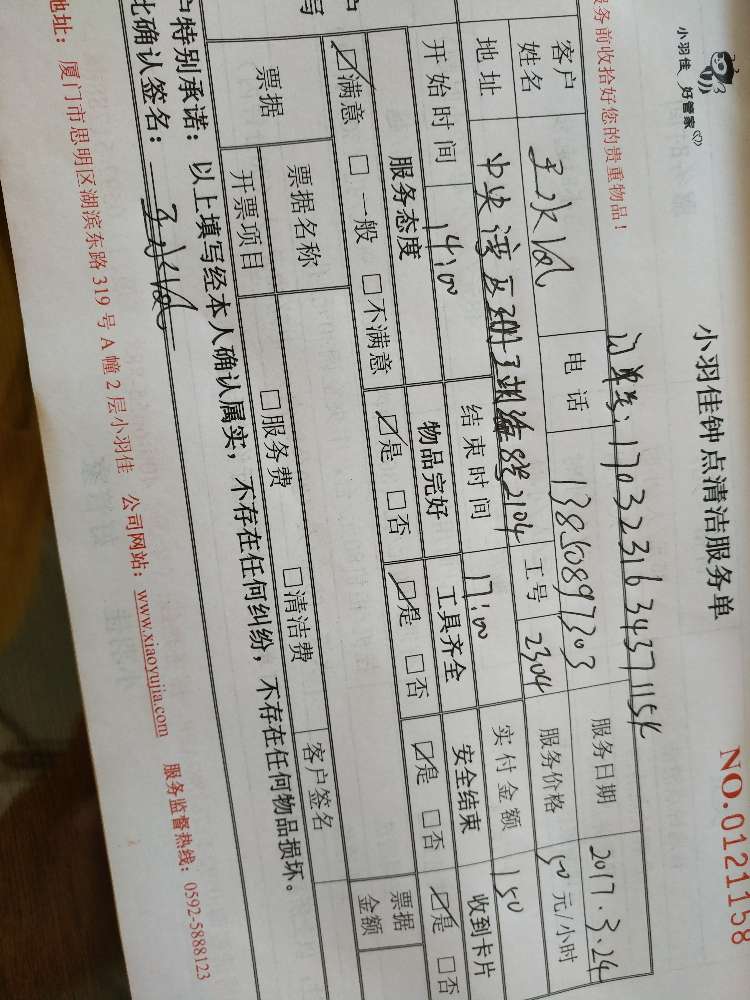 小羽佳 好管家
小羽佳钟点清洁服务单
NO.0121158
服务前收拾好您的贵重物品！
订单号：1703231634371154
客户姓名 电话 13850897303 服务日期 2017.3.24
地址 中央湾区 8号2104 工号 2304 服务价格 50 元/小时
开始时间 14:00 结束时间 17:00 实付金额 150
服务态度 物品完好 工具齐全 安全结束 收到卡片
☑满意 □一般 □不满意 ☑是 □否 ☑是 □否 ☑是 □否 ☑是 □否
票据 票据名称 票据金额
开票项目 □服务费 □清洁费 客户签名
户特别承诺：以上填写经本人确认属实，不存在任何纠纷，不存在任何物品损坏。
此确认签名：
地址：厦门市思明区湖滨东路319号A幢2层小羽佳 公司网站：www.xiaoyujia.com 服务监督热线：0592-5888123